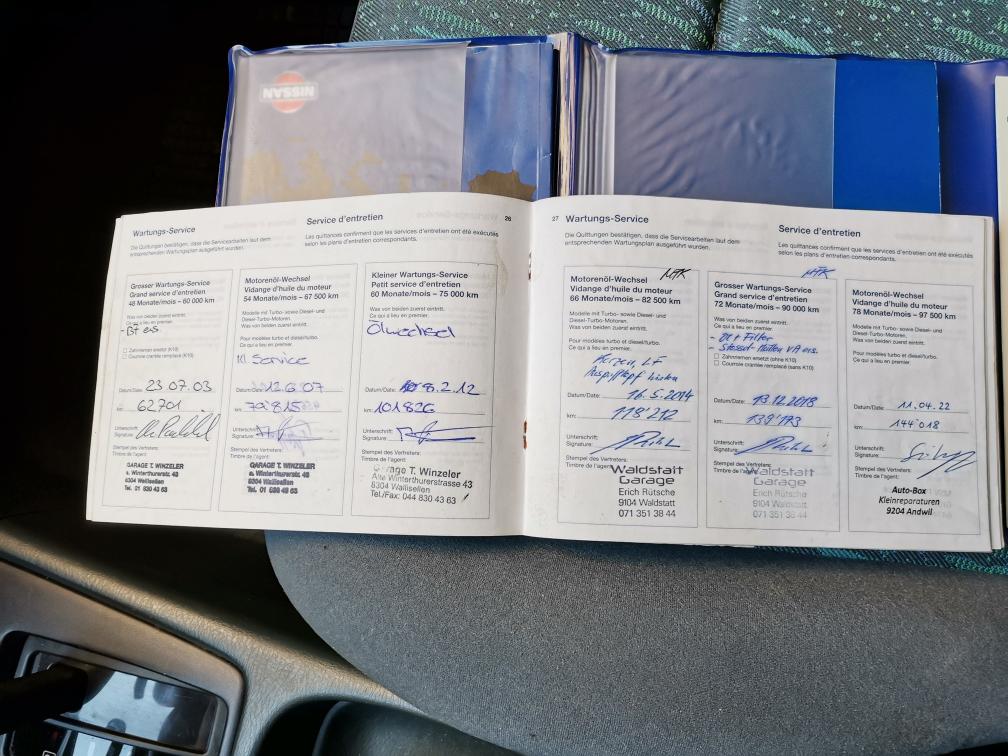 NISSAN
Wartungs-Service
Service d'entretien
26
Die Quittungen bestätigen, dass die Servicearbeiten laut dem
entsprechenden Wartungsplan ausgeführt wurden.
Les quittances confirment que les services d'entretien ont été exécutés
selon les plans d'entretien correspondants.
Grosser Wartungs-Service
Grand service d'entretien
48 Monate/mois – 60 000 km
Was von beiden zuerst eintritt.
Ce qui a lieu en premier.
Zahnriemen ersetzt (K10)
Courroie crantée remplacé (K10)
Datum/Date: 23.07.03
km: 62701
Unterschrift:
Signature:
Stempel des Vertreters:
Timbre de l'agent:
GARAGE T. WINZELER
a. Winterthurerstr. 43
8304 Wallisellen
Tel. 01 830 43 63
Motorenöl-Wechsel
Vidange d'huile du moteur
54 Monate/mois – 67 500 km
Modelle mit Turbo- sowie Diesel- und
Diesel-Turbo-Motoren.
Was von beiden zuerst eintritt.
Pour modèles turbo et diesel/turbo.
Ce qui a lieu en premier.
Kl. Service
Datum/Date: 12.6.07
km: 79'815
Unterschrift:
Signature:
Stempel des Vertreters:
Timbre de l'agent:
GARAGE T. WINZELER
a. Winterthurerstr. 43
8304 Wallisellen
Tel. 01 830 43 63
Kleiner Wartungs-Service
Petit service d'entretien
60 Monate/mois – 75 000 km
Was von beiden zuerst eintritt.
Ce qui a lieu en premier.
Ölwechsel
Datum/Date: 8.2.12
km: 101826
Unterschrift:
Signature:
Stempel des Vertreters:
Timbre de l'agent:
Garage T. Winzeler
Alte Winterthurerstrasse 43
8304 Wallisellen
Tel./Fax: 044 830 43 63
27
Wartungs-Service
Service d'entretien
Die Quittungen bestätigen, dass die Servicearbeiten laut dem
entsprechenden Wartungsplan ausgeführt wurden.
Les quittances confirment que les services d'entretien ont été exécutés
selon les plans d'entretien correspondants.
MFK
Motorenöl-Wechsel
Vidange d'huile du moteur
66 Monate/mois – 82 500 km
Modelle mit Turbo- sowie Diesel- und
Diesel-Turbo-Motoren.
Was von beiden zuerst eintritt.
Pour modèles turbo et diesel/turbo.
Ce qui a lieu en premier.
Kerzen, LF
Auspufftopf hinten
Datum/Date: 16.5.2014
km: 118'212
Unterschrift:
Signature:
Stempel des Vertreters:
Timbre de l'agent:
Waldstatt
Garage
Erich Rütsche
9104 Waldstatt
071 351 38 44
MFK
Grosser Wartungs-Service
Grand service d'entretien
72 Monate/mois – 90 000 km
Was von beiden zuerst eintritt.
Ce qui a lieu en premier.
- Öl + Filter
VA ers.
Zahnriemen ersetzt (ohne K10)
Courroie crantée remplacé (sans K10)
Datum/Date: 13.12.2018
km: 139'173
Unterschrift:
Signature:
Stempel des Vertreters:
Timbre de l'agent:
Waldstatt
Garage
Erich Rütsche
9104 Waldstatt
071 351 38 44
Motorenöl-Wechsel
Vidange d'huile du moteur
78 Monate/mois – 97 500 km
Modelle mit Turbo- sowie Diesel- und
Diesel-Turbo-Motoren.
Was von beiden zuerst eintritt.
Pour modèles turbo et diesel/turbo.
Ce qui a lieu en premier.
Datum/Date: 11.04.22
km: 144'018
Unterschrift:
Signature:
Stempel des Vertreters:
Timbre de l'agent:
Auto-Box
Kleinreparaturen
9204 Andwil